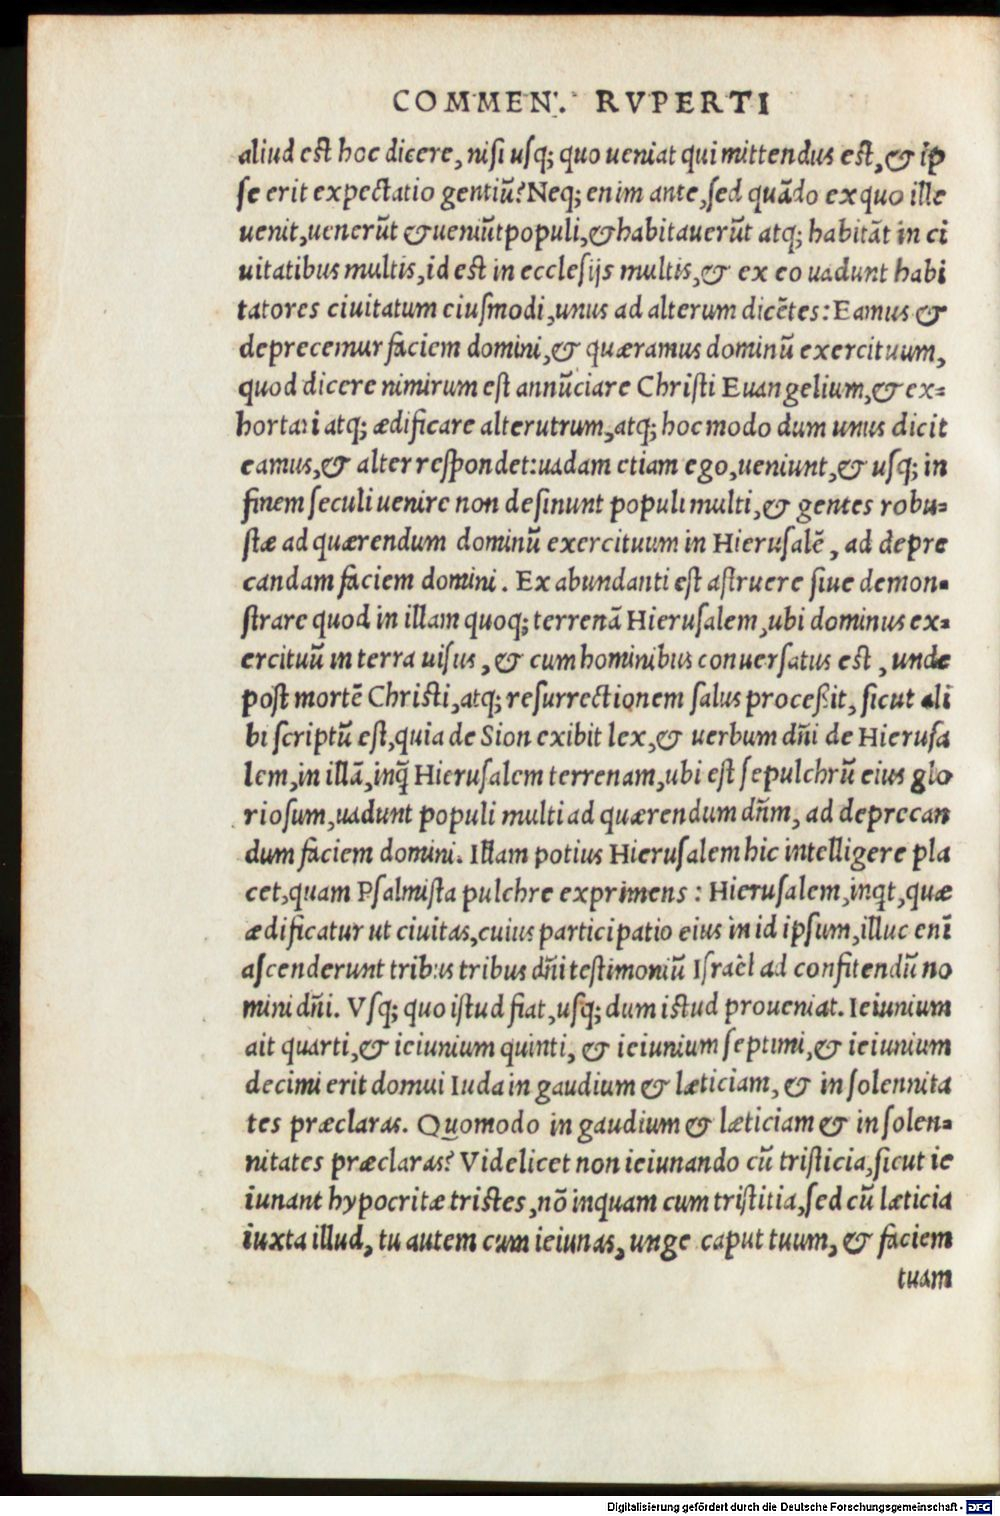 COMMEN. RVPERTI
aliud est hoc dicere, nisi usq; quo ueniat qui mittendus est, & ip
se erit expectatio gentiū? Neq; enim ante, sed quādo ex quo ille
uenit, uenerūt & ueniūt populi, & habitauerūt atq; habitāt in ci
uitatibus multis, id est in ecclesijs multis, & ex eo uadunt habi
tatores ciuitatum eiusmodi, unus ad alterum dicētes: Eamus &
deprecemur faciem domini, & quæramus dominū exercituum,
quod dicere nimirum est annūciare Christi Euangelium, & ex=
hortari atq; ædificare alterutrum, atq; hoc modo dum unus dicit
eamus, & alter respondet: uadam etiam ego, ueniunt, & usq; in
finem seculi uenire non desinunt populi multi, & gentes robu=
stæ ad quærendum dominū exercituum in Hierusalē, ad depre
candam faciem domini. Ex abundanti est astruere siue demon=
strare quod in illam quoq; terrenā Hierusalem, ubi dominus ex=
ercituū in terra uisus, & cum hominibus conuersatus est, unde
post mortē Christi, atq; resurrectionem salus proceßit, sicut ali
bi scriptū est, quia de Sion exibit lex, & uerbum dn̄i de Hierusa
lem, in illā, inq̄ Hierusalem terrenam, ubi est sepulchrū eius glo
riosum, uadunt populi multi ad quærendum dn̄m, ad deprecan
dum faciem domini. Illam potius Hierusalem hic intelligere pla
cet, quam Psalmista pulchre exprimens: Hierusalem, inqt, quæ
ædificatur ut ciuitas, cuius participatio eius in id ipsum, illuc enī
ascenderunt tribus tribus dn̄i testimoniū Israèl ad confitendū no
mini dn̄i. Vsq; quo istud fiat, usq; dum istud proueniat. Ieiunium
ait quarti, & ieiunium quinti, & ieiunium septimi, & ieiunium
decimi erit domui Iuda in gaudium & læticiam, & in solennita
tes præclaras. Quomodo in gaudium & læticiam & in solen=
nitates præclaras? Videlicet non ieiunando cū tristicia, sicut ie
iunant hypocritæ tristes, nō inquam cum tristitia, sed cū læticia
iuxta illud, tu autem cum ieiunas, unge caput tuum, & faciem
tuam
Digitalisierung gefördert durch die Deutsche Forschungsgemeinschaft - DFG